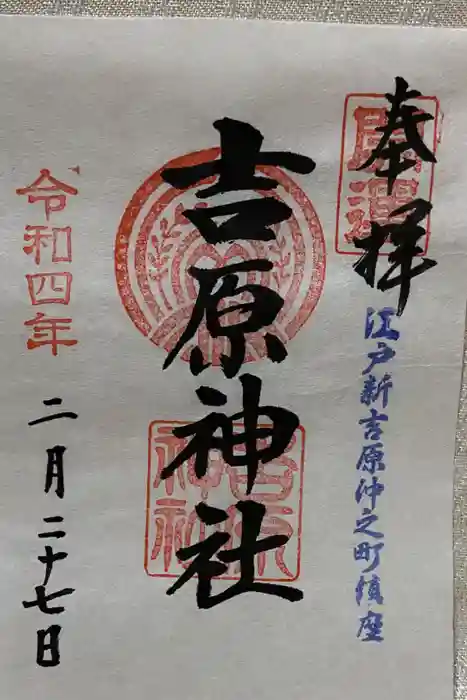 奉拝
開運
江戸新吉原沖之町鎮座
吉原神社
令和四年
二月二十七日